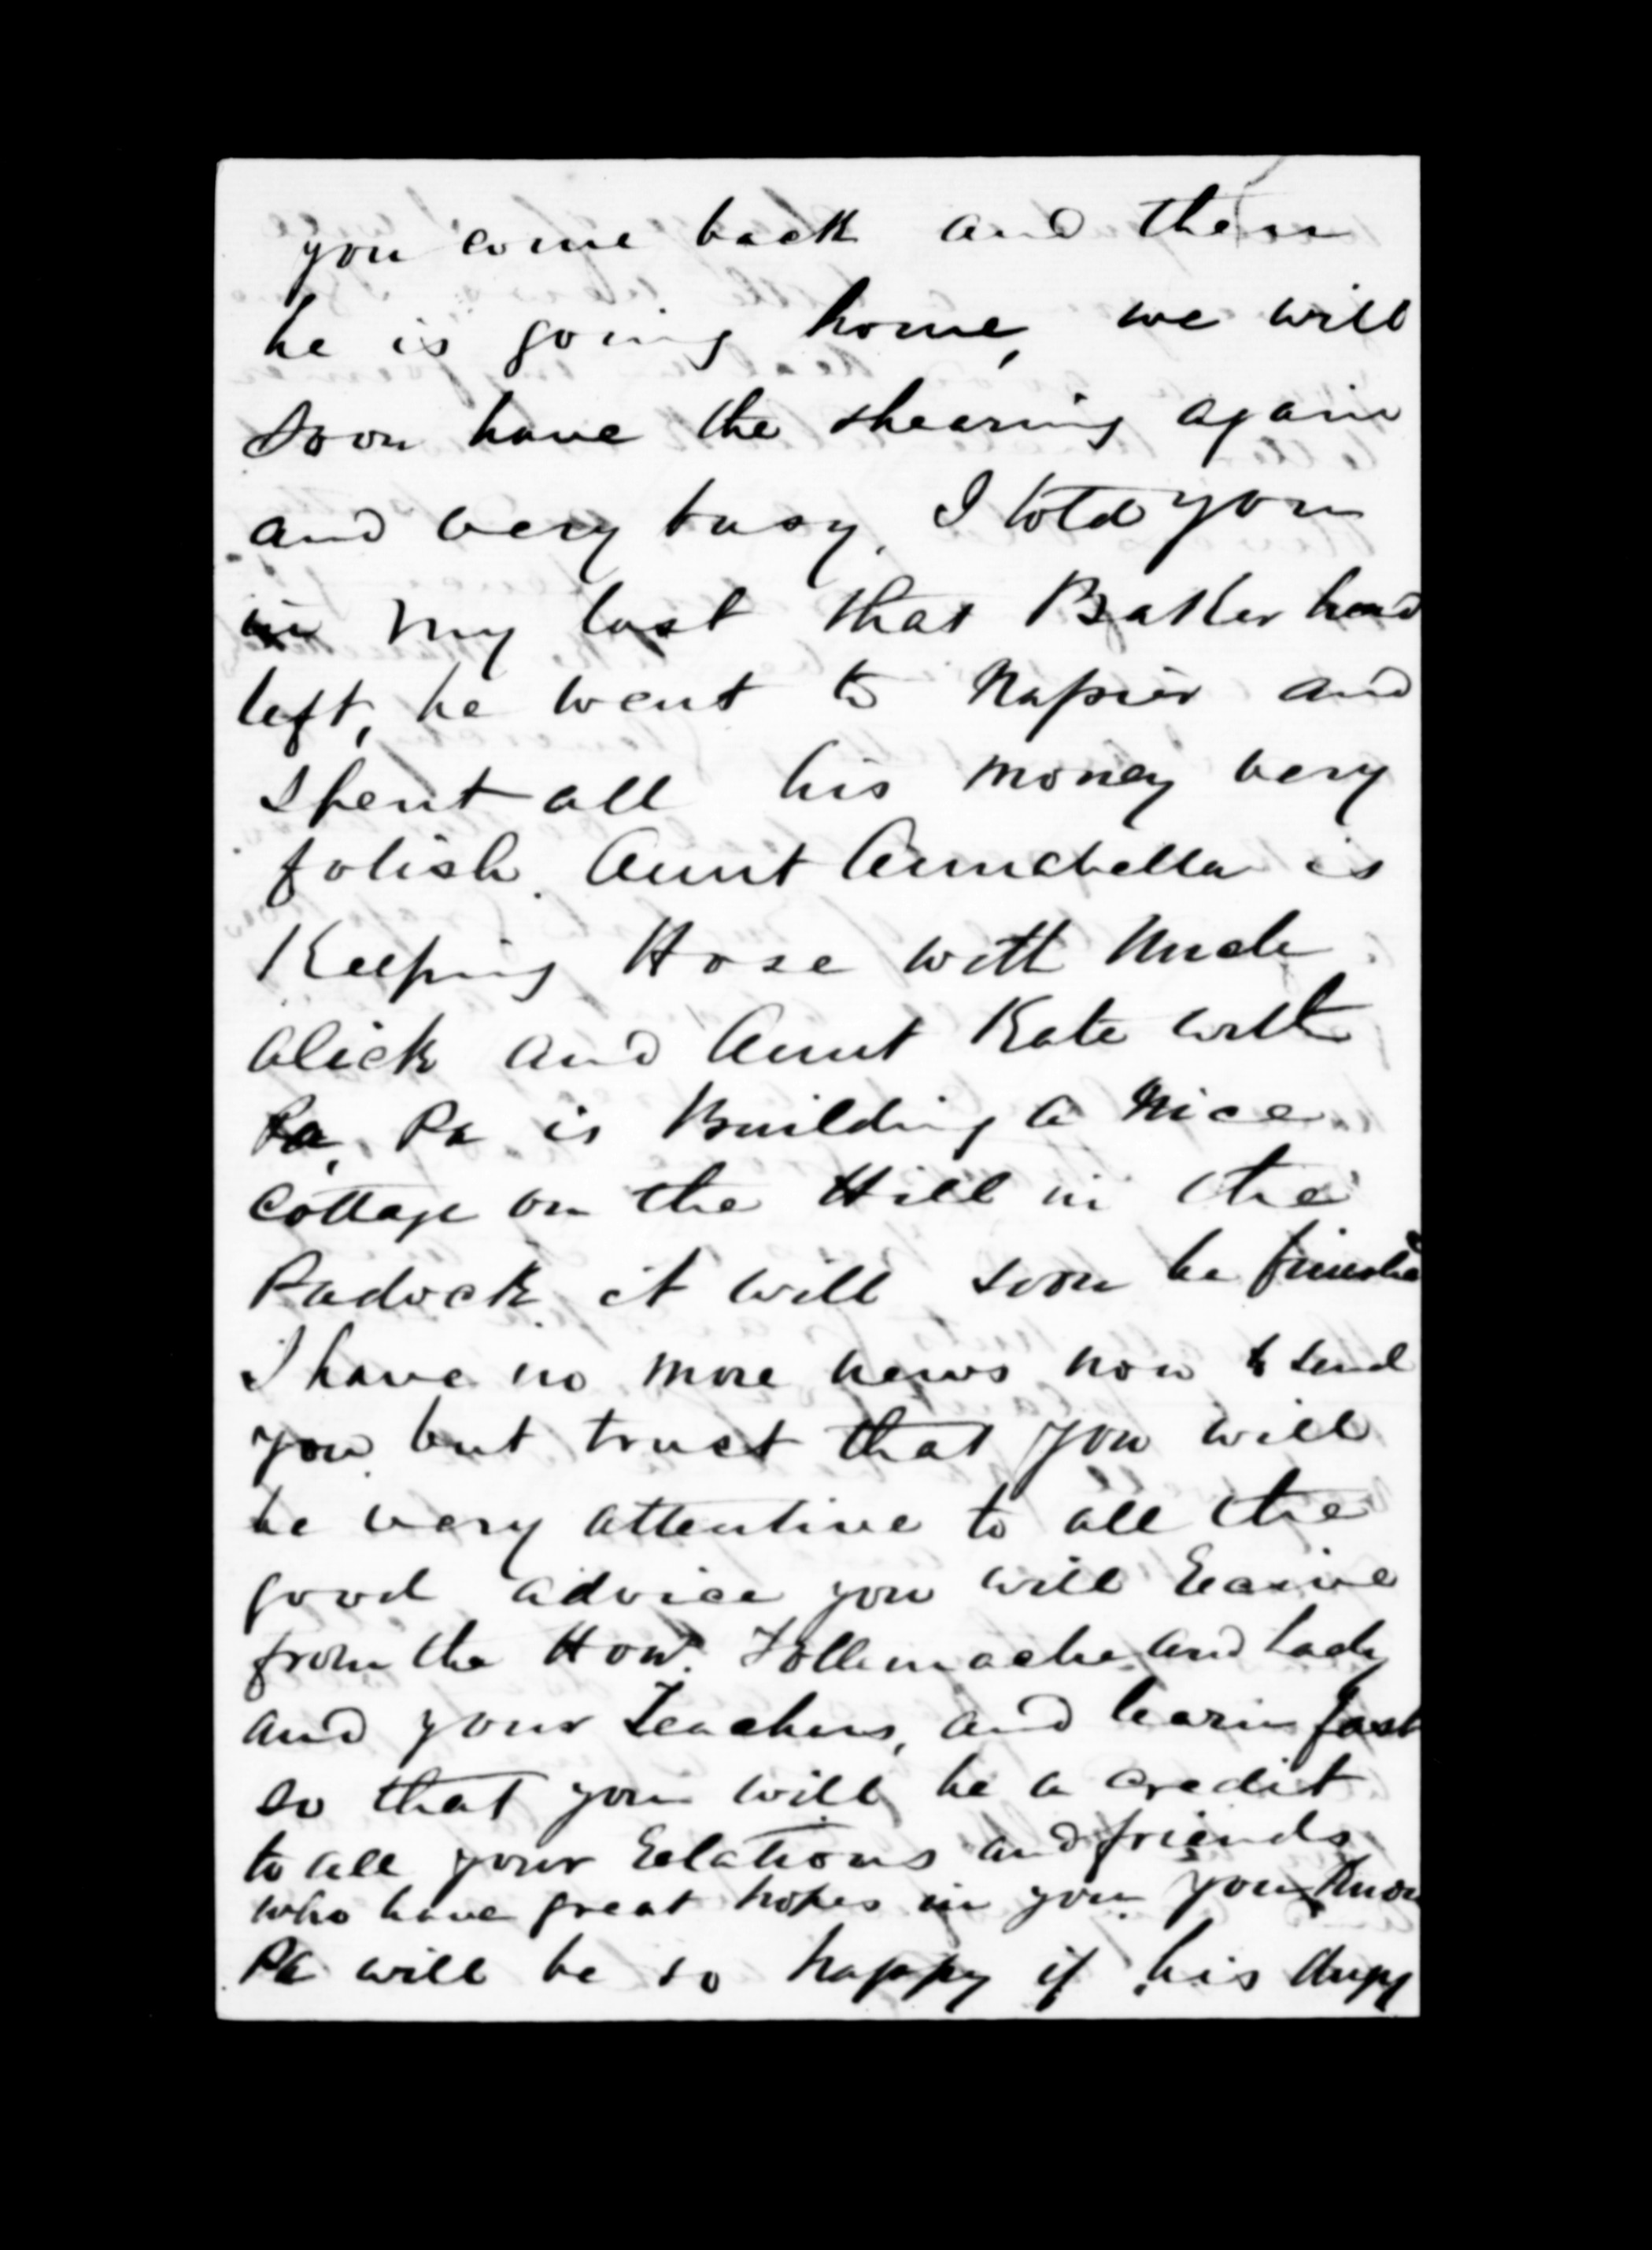 you come back and then
he is going home, we will
soon have the shearing again
and very busy, I told you
in my last that Baker had
left, he went to Napier and
spent all his money very
folish. Aunt Annabella is
Keeping Hose with Uncle
Alick and Aunt Kate with
Pa, Pa is Building a Nice
Cottage on the Hill in the
Padock it will soon be finished
I have no more news now to send
you but trust that you will
be very attentive to all the
good advice you will Receive
from the Hon. Tollemache and Lady
and your Teachers, and learn fast
so that you will be a credit
to all your Relations and friends
who have great hopes in you you know
Pa will be so happy if his